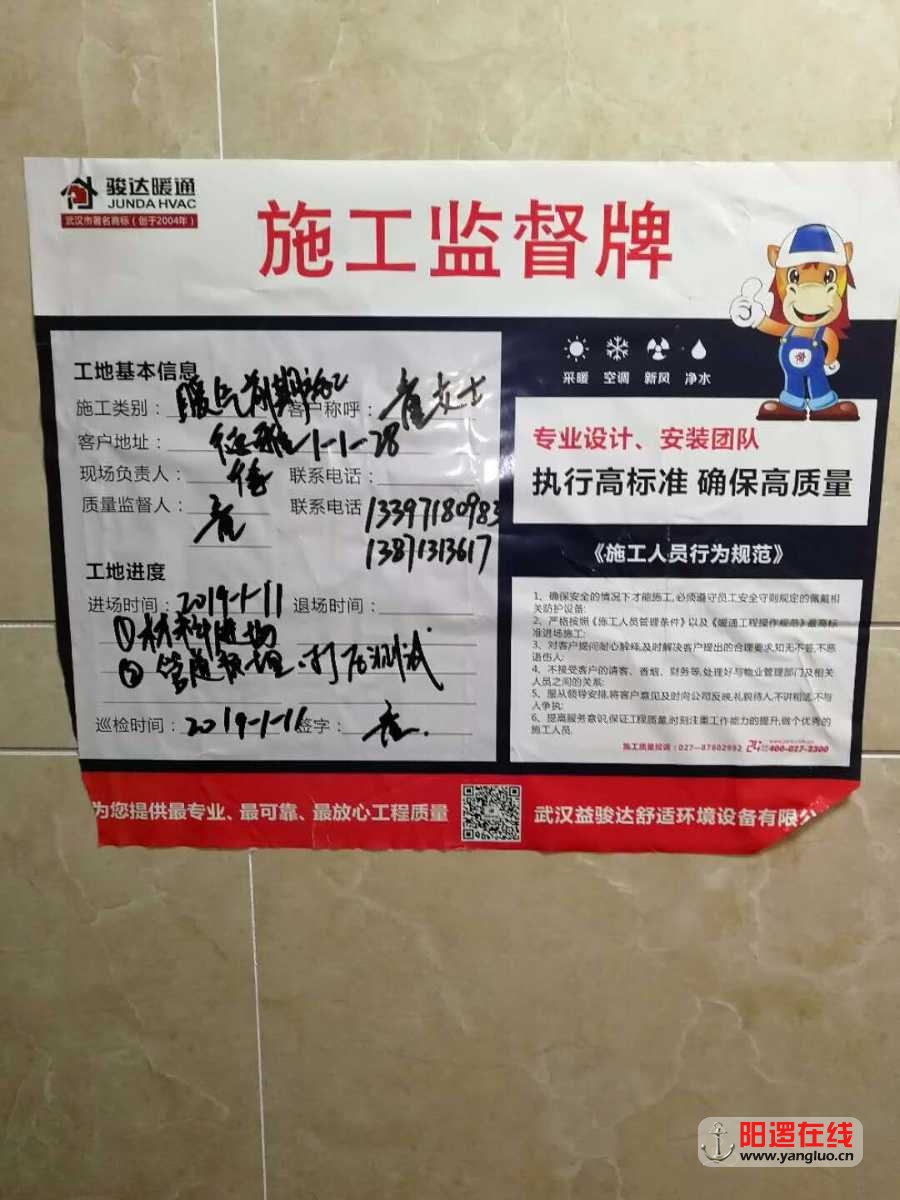 骏达暖通
JUNDA HVAC
武汉市著名商标（创于2004年）
施工监督牌
工地基本信息
施工类别：暖气前期施工 客户称呼：崔女士
客户地址：德雅1-1-28
现场负责人： 联系电话：
质量监督人： 联系电话 13397180983
13871313617
工地进度
进场时间：2019-1-11 退场时间：
①材料进场
②管道预埋.打压测试
巡检时间：2019-1-16 签字：
采暖 空调 新风 净水
专业设计、安装团队
执行高标准 确保高质量
《施工人员行为规范》
1、确保安全的情况下才能施工,必须遵守员工安全守则规定的佩戴相
关防护设备;
2、严格按照《施工人员管理条件》以及《暖通工程操作规范》最高标
准进场施工;
3、对客户提问耐心解释,及时解决客户提出的合理要求,知无不答,不恶
语伤人;
4、不接受客户的请客、香烟、财务等,处理好与物业管理部门及相关
人员之间的关系;
5、服从领导安排,将客户意见及时向公司反映,礼貌待人,不讲粗话,不与
人争执;
6、提高服务意识,保证工程质量,时刻注重工作能力的提升,做个优秀的
施工人员.
施工质量投诉：027-87602992 24 400-027-2300
为您提供最专业、最可靠、最放心工程质量
武汉益骏达舒适环境设备有限公
阳逻在线
www.yangluo.cn